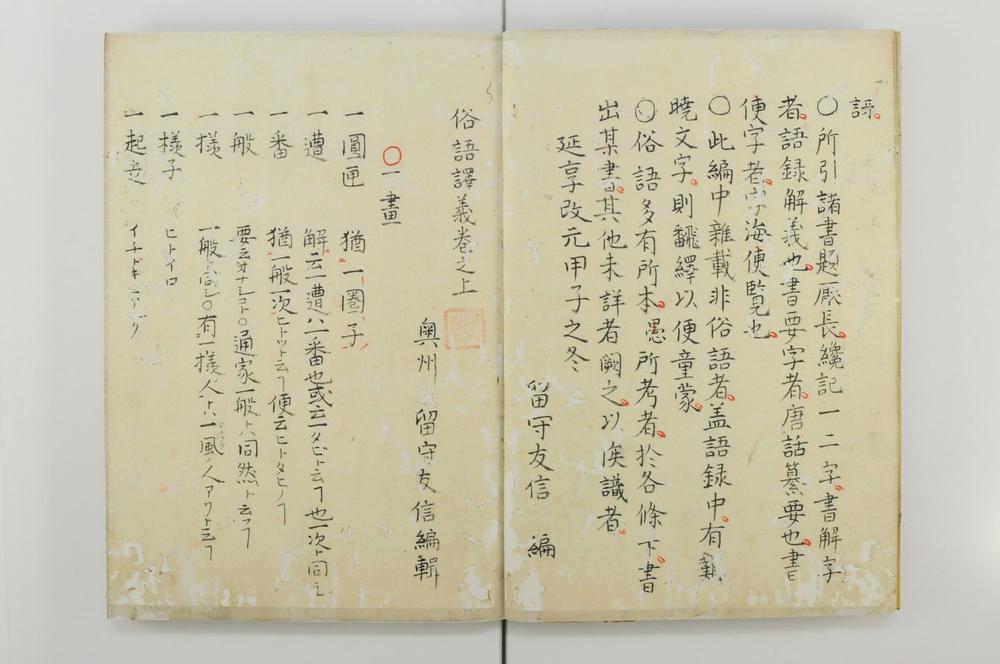 諺
〇所引諸書題厭長纔記一二字書解字
者語録解義也書要字者唐話纂要也書
便字者字海便覧也
〇此編中雜載非俗語者盖語録中有難
曉文字則飜繹以便童蒙
〇俗語多有所本愚所考者於各條下書
出某書其他未詳者闕之以俟識者
延享改元甲子之冬
留守友信 編
俗語譯義巻之上
奥州 留守友信編輯
〇一畫
一圓匣 猶一圏子
一遭 解云一遭ハ一番也或云一タビト云フ也一次ト同シ
一番 猶一般一次ヒトットニ云フ便云ヒトタヒノフ
一般 要云オナシコト〇通家一般トハ同然ト云フフ
一様 一般ト同シ〇有一様人トハ一風ノ人アワト云フ
一樣子 ヒトイロ
一起